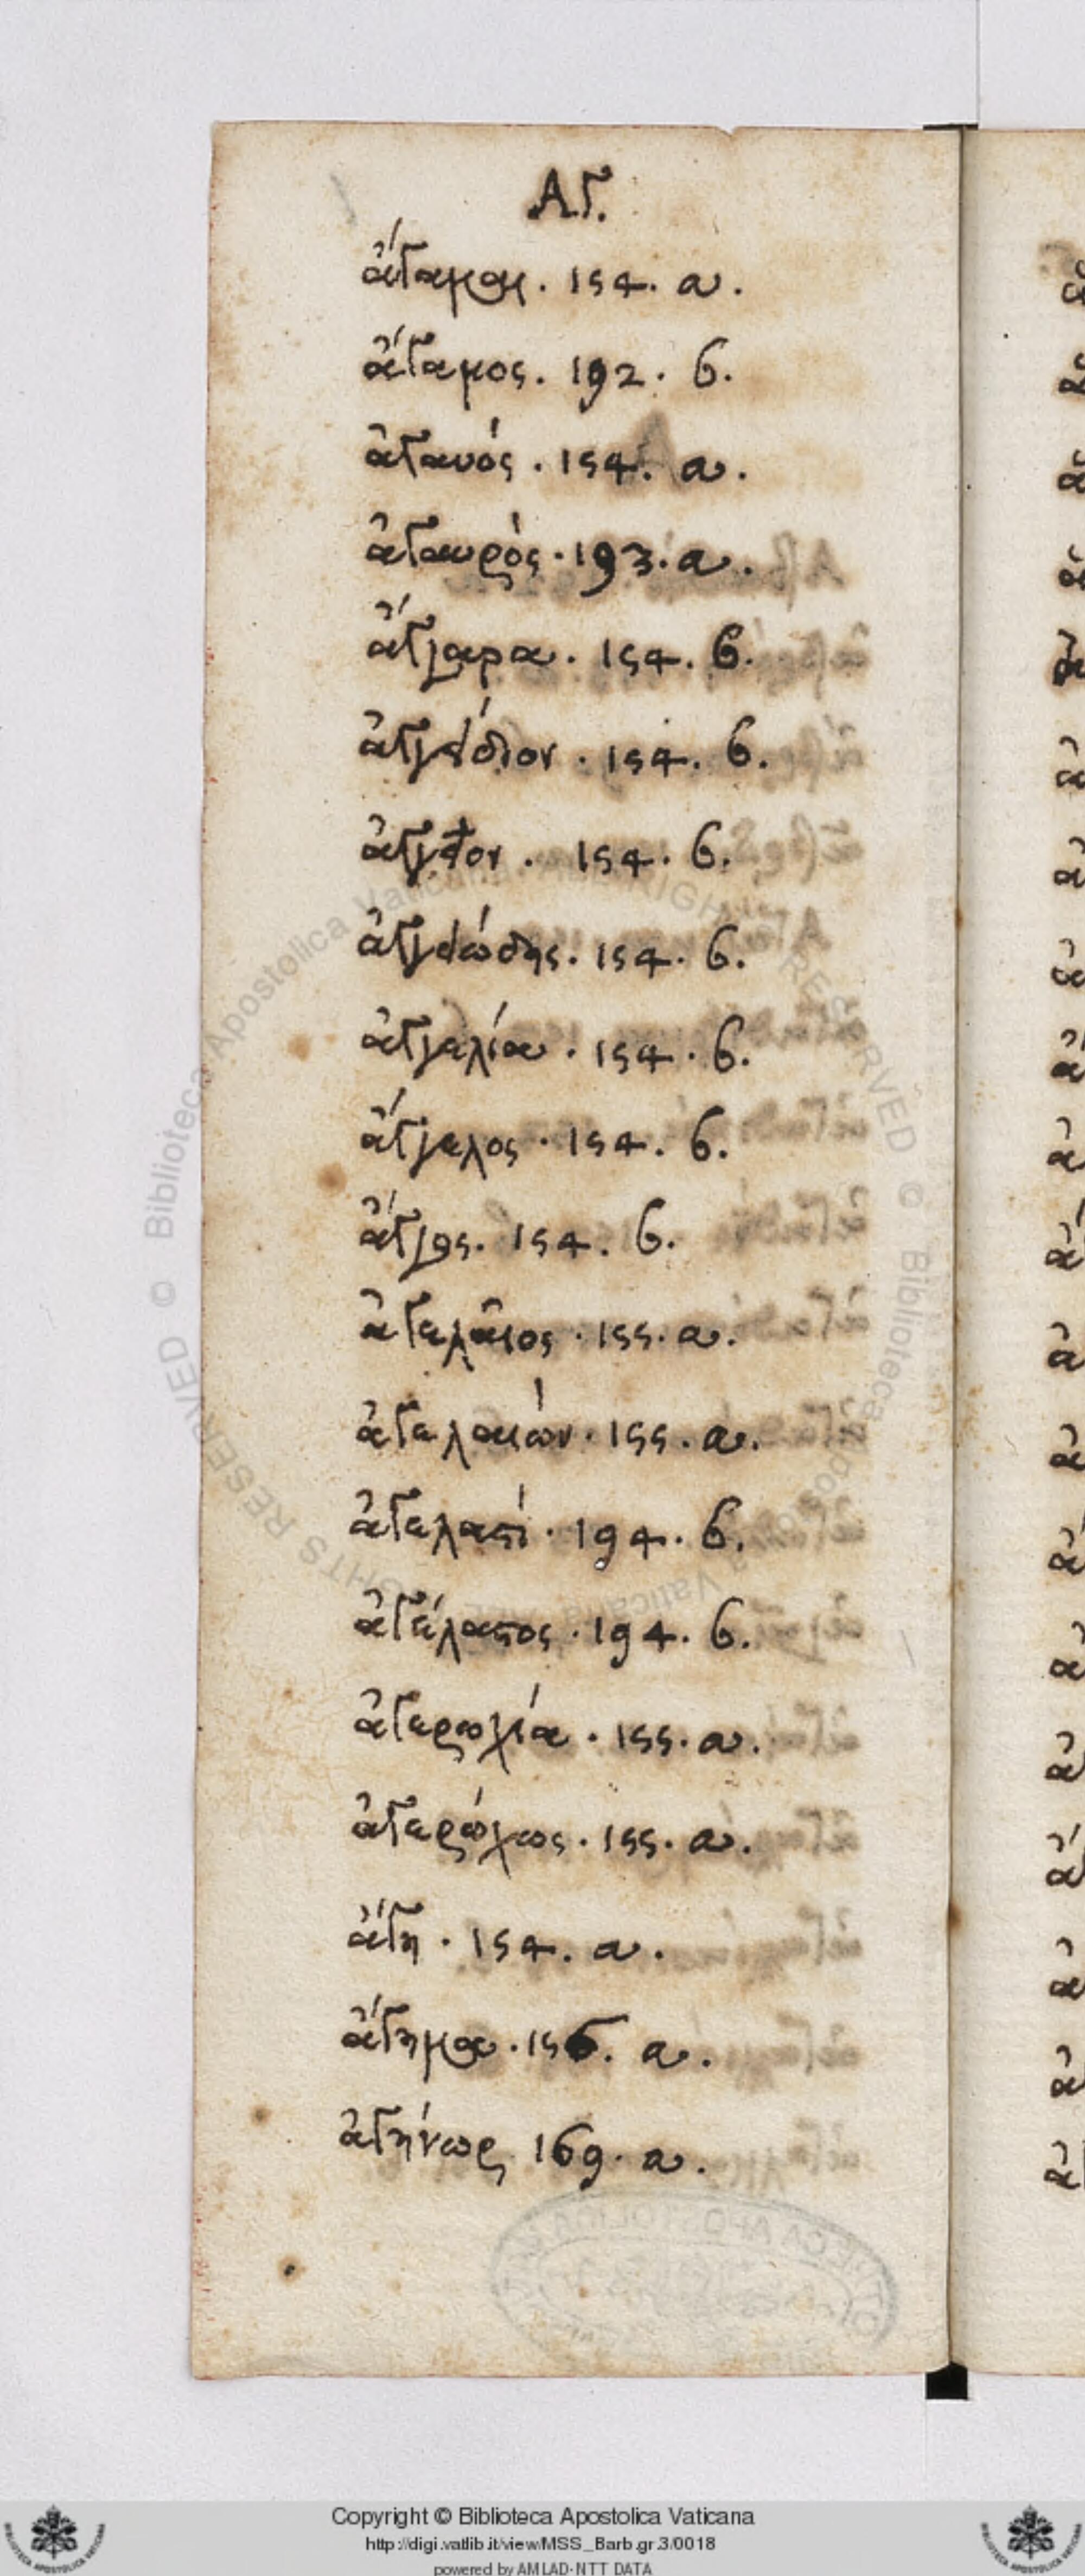 ΑΓ.
ἄγαμαι. 154. a.
ἄγαμος. 192. b.
ἀγανός. 154. a.
ἀγαυρὸς. 193. a.
ἄγγαρα. 154. b.
ἀγγείδιον. 154. b.
ἀγγεῖον. 154. b.
ἀγγειώδης. 154. b.
ἀγγελία. 154. b.
ἄγγελος. 154. b.
ἄγγος. 154. b.
ἀγελαῖος. 155. a.
ἀγελαιών. 155. a.
ἀγελαστὶ. 194. b.
ἀγέλαστος. 194. b.
ἀγερωχία. 155. a.
ἀγερώχως. 155. a.
ἄγη. 154. a.
ἄγημα. 156. a.
ἀγήνωρ 169. a.
Copyright © Biblioteca Apostolica Vaticana
http://digi.vatlib.it/view/MSS_Barb.gr.3/0018
powered by AMLAD-NTT DATA